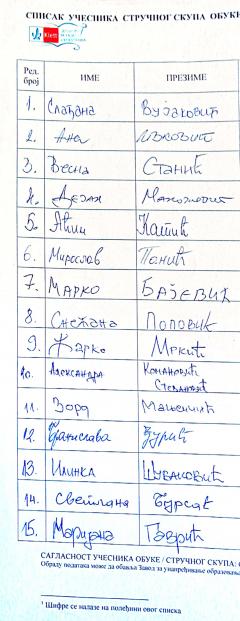 СПИСАК УЧЕСНИКА СТРУЧНОГ СКУПА ОБУКЕ
Klett
Ред. број ИМЕ ПРЕЗИМЕ
1. Слађана Вујаковић
2. Ана
3. Весна Станић
4. Дејан
5.
6. Мирослав Панић
7. МАРКО БАЈЕВИЋ
8. Снежана Поповић
9. Жарко Мркић
10. Александра
11.
12. Бранислава Ђурић
13. Илинка
14. Светлана Бурсаћ
15. Маријана Гаврић
САГЛАСНОСТ УЧЕСНИКА ОБУКЕ / СТРУЧНОГ СКУПА:
Обраду података може да обавља Завод за унапређивање образовања
¹ Шифре се налазе на полеђини овог списка